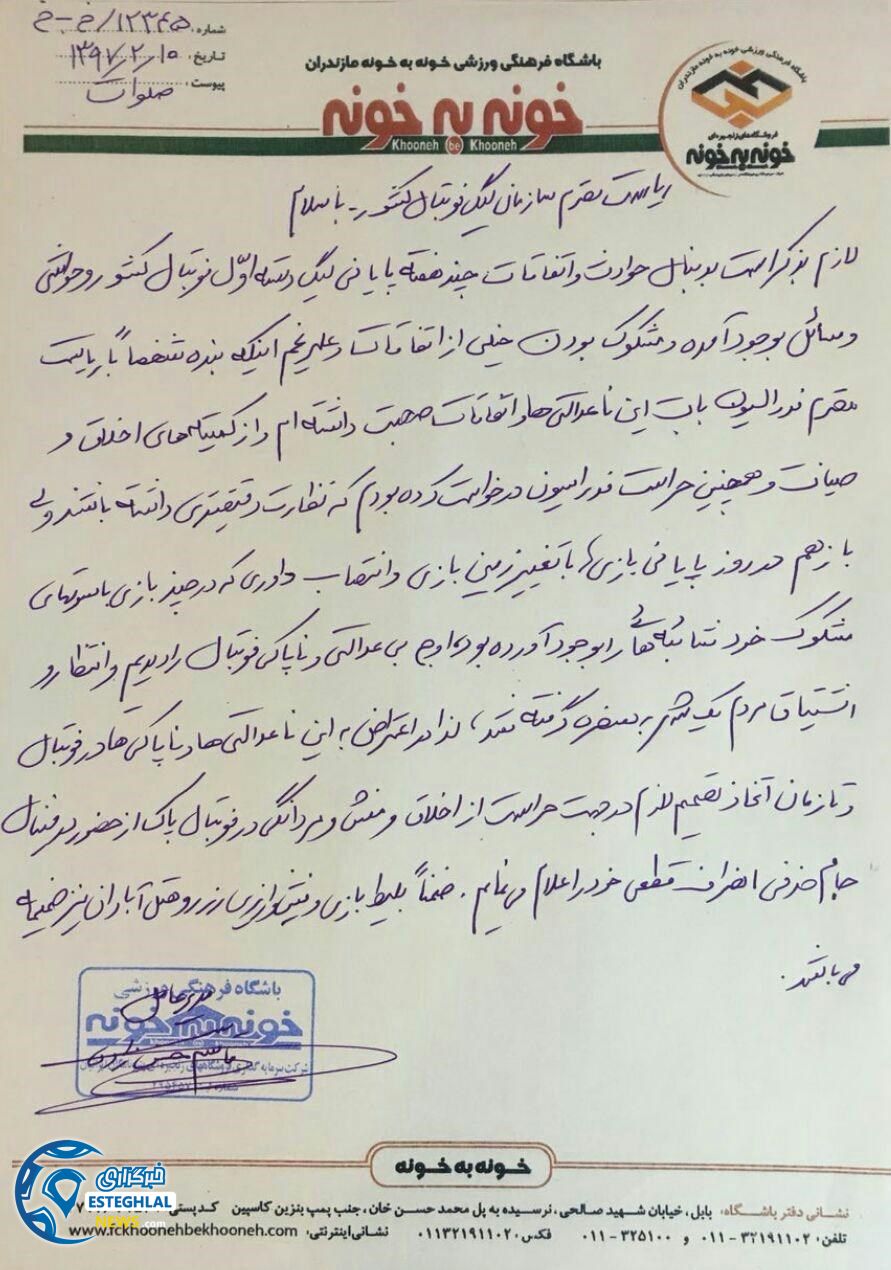 شماره: ۱۲۳۴۵/خ-خ
تاریخ: ۱۳۹۷/۲/۱۰
پیوست: صلوات
باشگاه فرهنگی ورزشی خونه به خونه مازندران
خونه به خونه
Khooneh be Khooneh
باشگاه فرهنگی ورزشی خونه به خونه مازندران
فروشگاه‌های زنجیره‌ای
خونه به خونه
ریاست محترم سازمان لیگ فوتبال کشور - با سلام
لازم بذکر است بدنبال حوادث و اتفاقات چند هفته پایانی لیگ دسته اول فوتبال کشور و حواشی
و مسائل بوجود آمده و مشکوک بودن خیلی از اتفاقات و علیرغم اینکه بنده شخصاً با ریاست
محترم فدراسیون بابت این ناعدالتی‌ها و اتفاقات صحبت داشته ام و از کمیته‌های اخلاق و
صیانت و همچنین حراست فدراسیون درخواست کرده بودم که نظارت دقیقتری داشته باشند ولی
باز هم در روز پایانی بازی‌ها، با تغییر زمین بازی و انتصاب داوری که در چند بازی با سوتهای
مشکوک خود شائبه‌هائی را بوجود آورده بود، اوج بی عدالتی و ناپاکی فوتبال را دیدیم و انتظار و
اشتیاق مردم یک شهر به سخره گرفته شد، لذا در اعتراض به این ناعدالتی‌ها و ناپاکی‌ها در فوتبال
و تا زمان اتخاذ تصمیم لازم در جهت حراست از اخلاق و منش و مردانگی در فوتبال پاک از حضور در فینال
جام حذفی انصراف قطعی خود را اعلام می نمایم. ضمناً بلیط بازی و فیش واریزی رزرو هتل آبادان نیز ضمیمه
می باشد.
باشگاه فرهنگی ورزشی
مدیرعامل
خونه به خونه
خونه به خونه
نشانی دفتر باشگاه: بابل، خیابان شهید صالحی، نرسیده به پل محمد حسن خان، جنب پمپ بنزین کاسپین کدپستی
تلفن: ۳۲۱۹۱۱۰۲-۰۱۱ و ۳۲۵۱۰۰-۰۱۱ فکس: ۰۱۱۳۲۱۹۱۱۰۲ نشانی اینترنتی: www.fckhoonehbekhooneh.com
خبرگزاری
ESTEGHLAL
NEWS.com